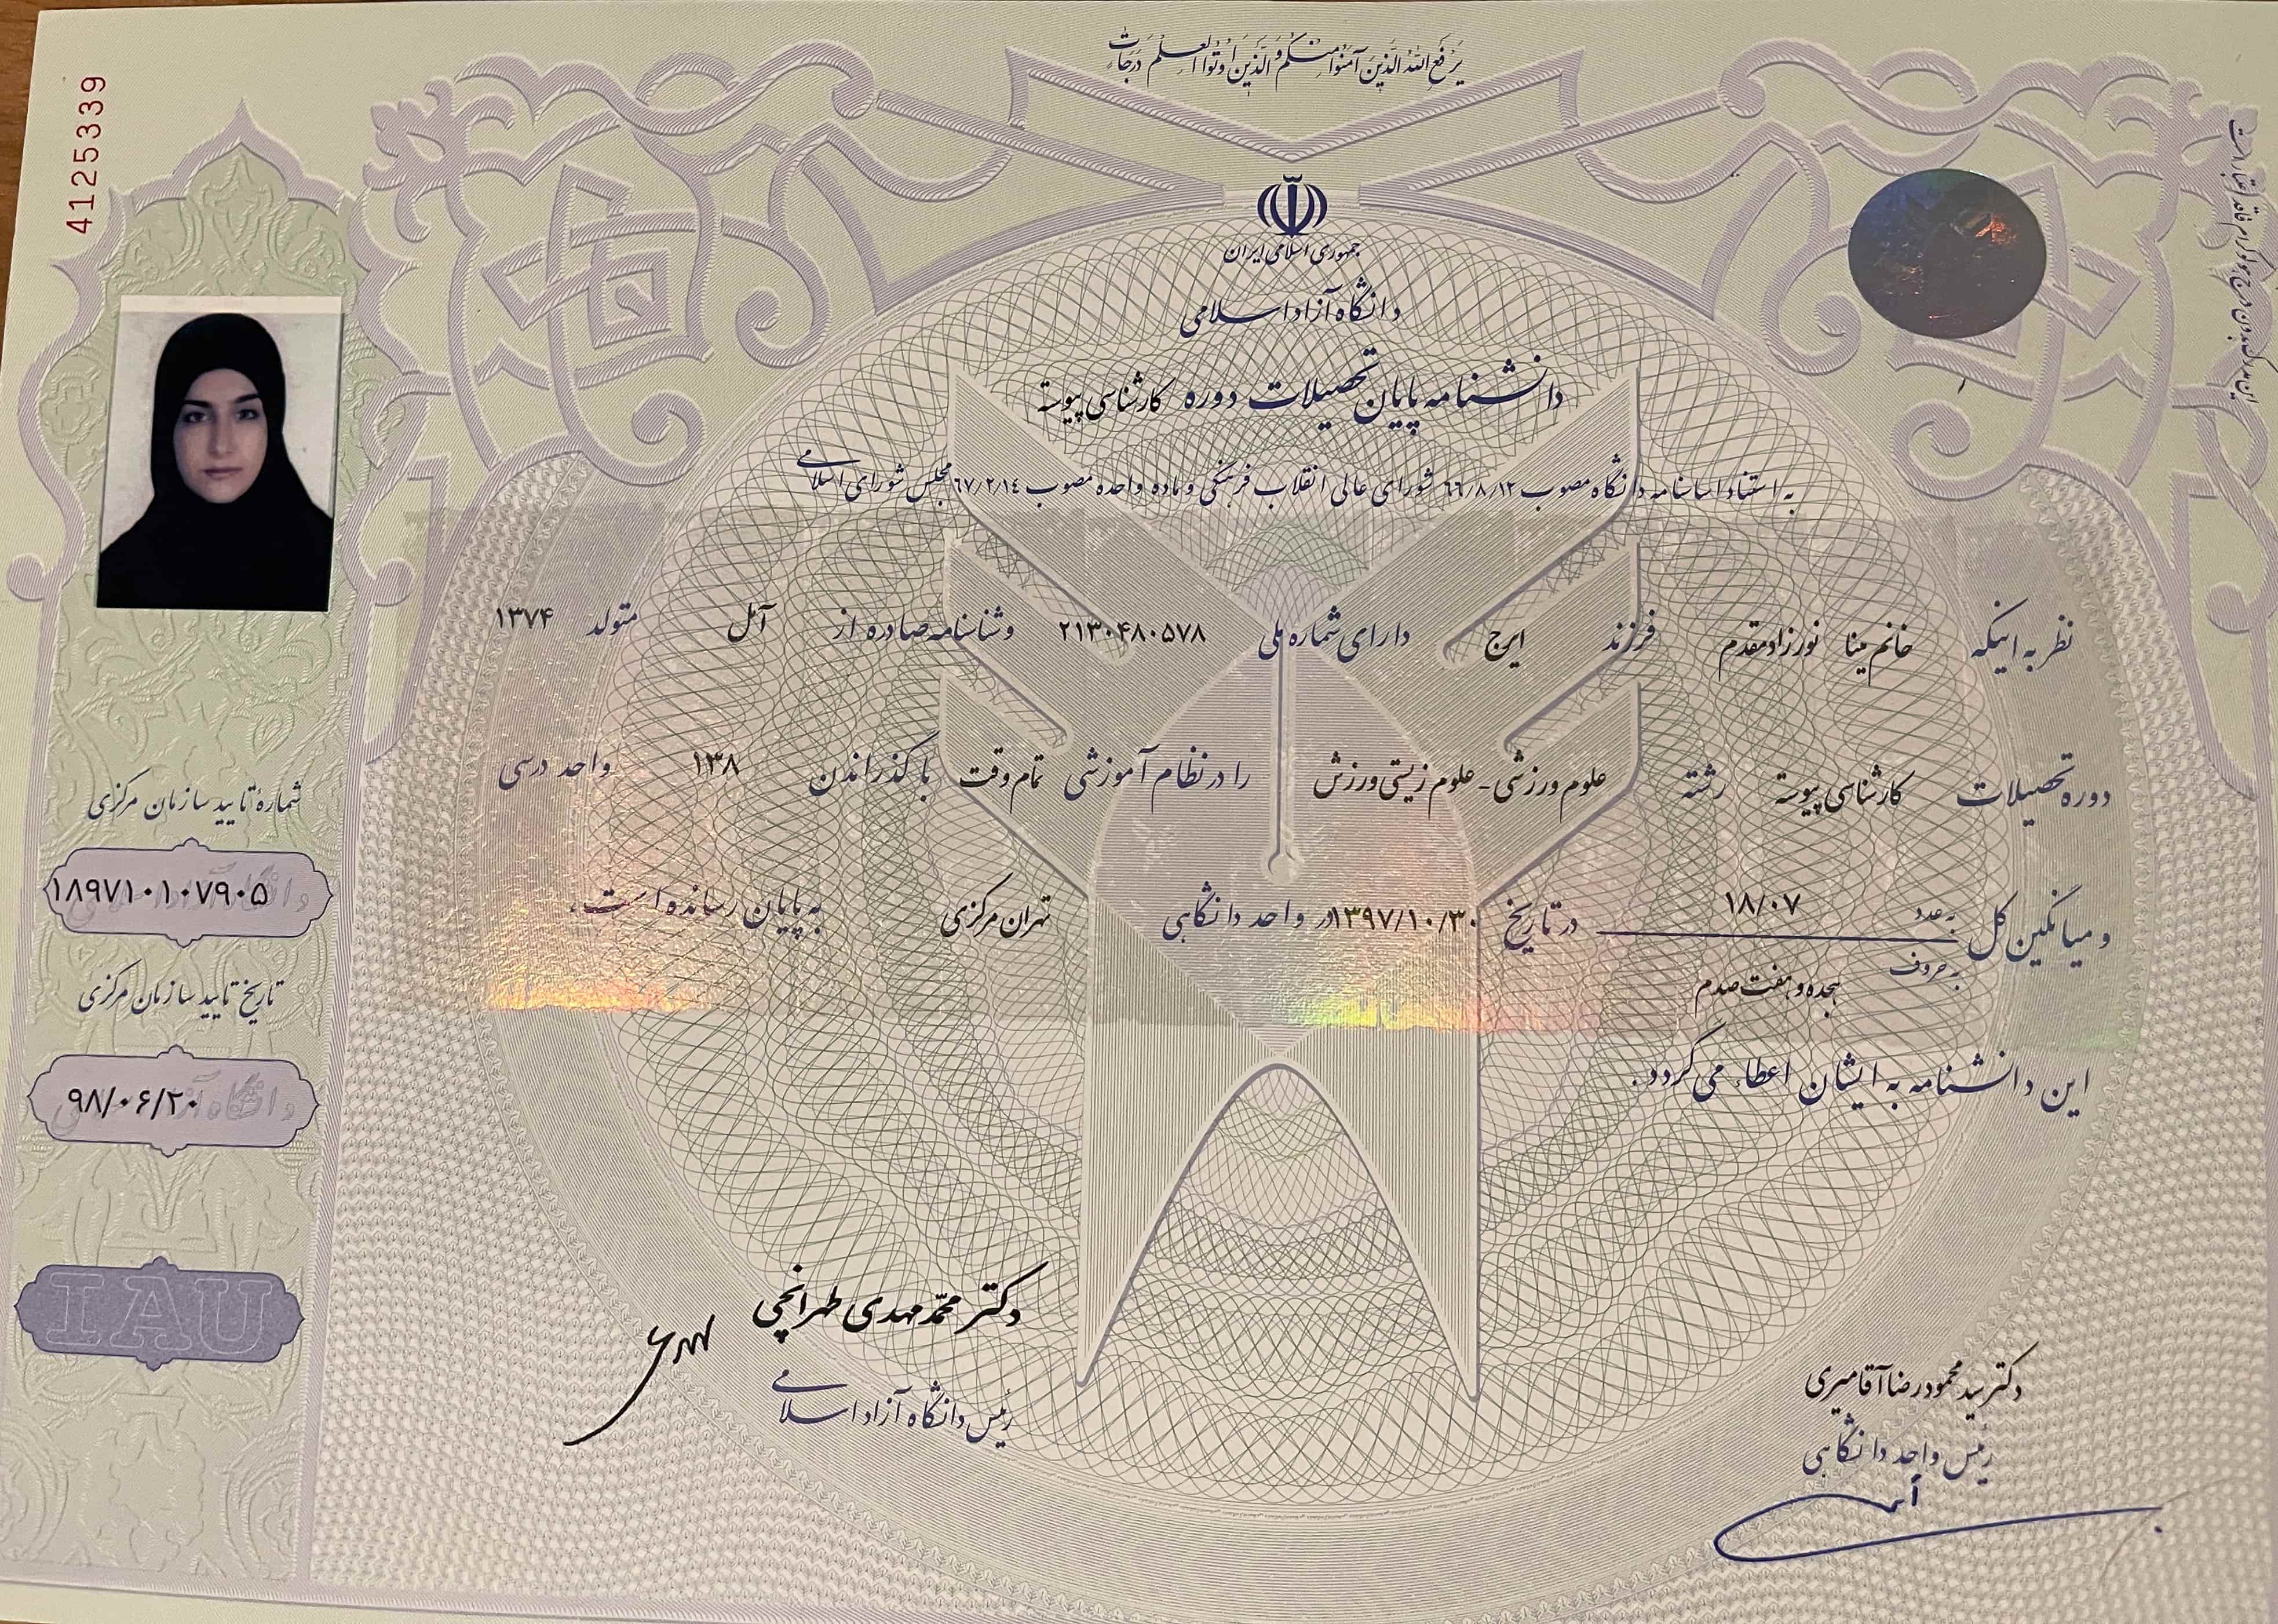 یرفع الله الذین آمنوا منکم و الذین اوتوا العلم درجات
4125339
جمهوری اسلامی ایران
دانشگاه آزاد اسلامی
دانشنامه پایان تحصیلات دوره کارشناسی پیوسته
به استناد اساسنامه دانشگاه مصوب ۶۶/۸/۱۲ شورای عالی انقلاب فرهنگی و ماده واحده مصوب ۶۷/۲/۱۴ مجلس شورای اسلامی
نظر به اینکه خانم مینا نورزادمقدم فرزند ایرج دارای شماره ملی ۲۱۳۰۴۸۰۵۷۸ و شناسنامه صادره از آمل متولد ۱۳۷۴
دوره تحصیلات کارشناسی پیوسته رشته علوم ورزشی - علوم زیستی ورزش را در نظام آموزشی تمام وقت با گذراندن ۱۳۸ واحد درسی
و میانگین کل به عدد ۱۸/۰۷ به حروف هجده و هفت صدم در تاریخ ۱۳۹۷/۱۰/۳۰ در واحد دانشگاهی تهران مرکزی به پایان رسانده است،
این دانشنامه به ایشان اعطاء می گردد.
شماره تایید سازمان مرکزی
۱۸۹۷۱۰۱۰۷۹۰۵
تاریخ تایید سازمان مرکزی
۹۸/۰۶/۲۰
IAU
دکتر محمد مهدی طهرانچی
رئیس دانشگاه آزاد اسلامی
دکتر سید محمودرضا آقامیری
رئیس واحد دانشگاهی